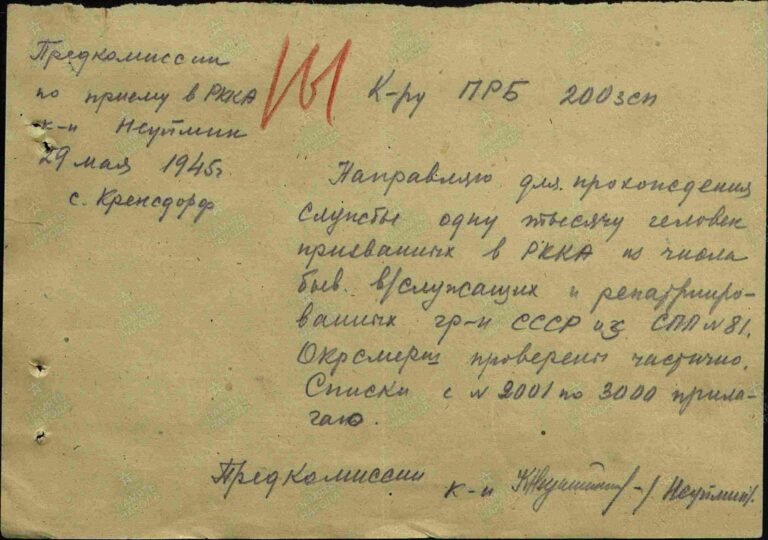 Предкомиссии
по приему в РККА
к-н Неуймин
29 мая 1945г
с. Кренсдорф
К-ру ПРБ 200зсп
Направляю для прохождения
службы одну тысячу человек
призванных в РККА из числа
быв. в/служащих и репатрииро-
ванных гр-н СССР из СПП №81.
Окрсмерш проверены частично.
Списки с №2001 по 3000 прила-
гаю.
Предкомиссии к-н /Неуймин/.